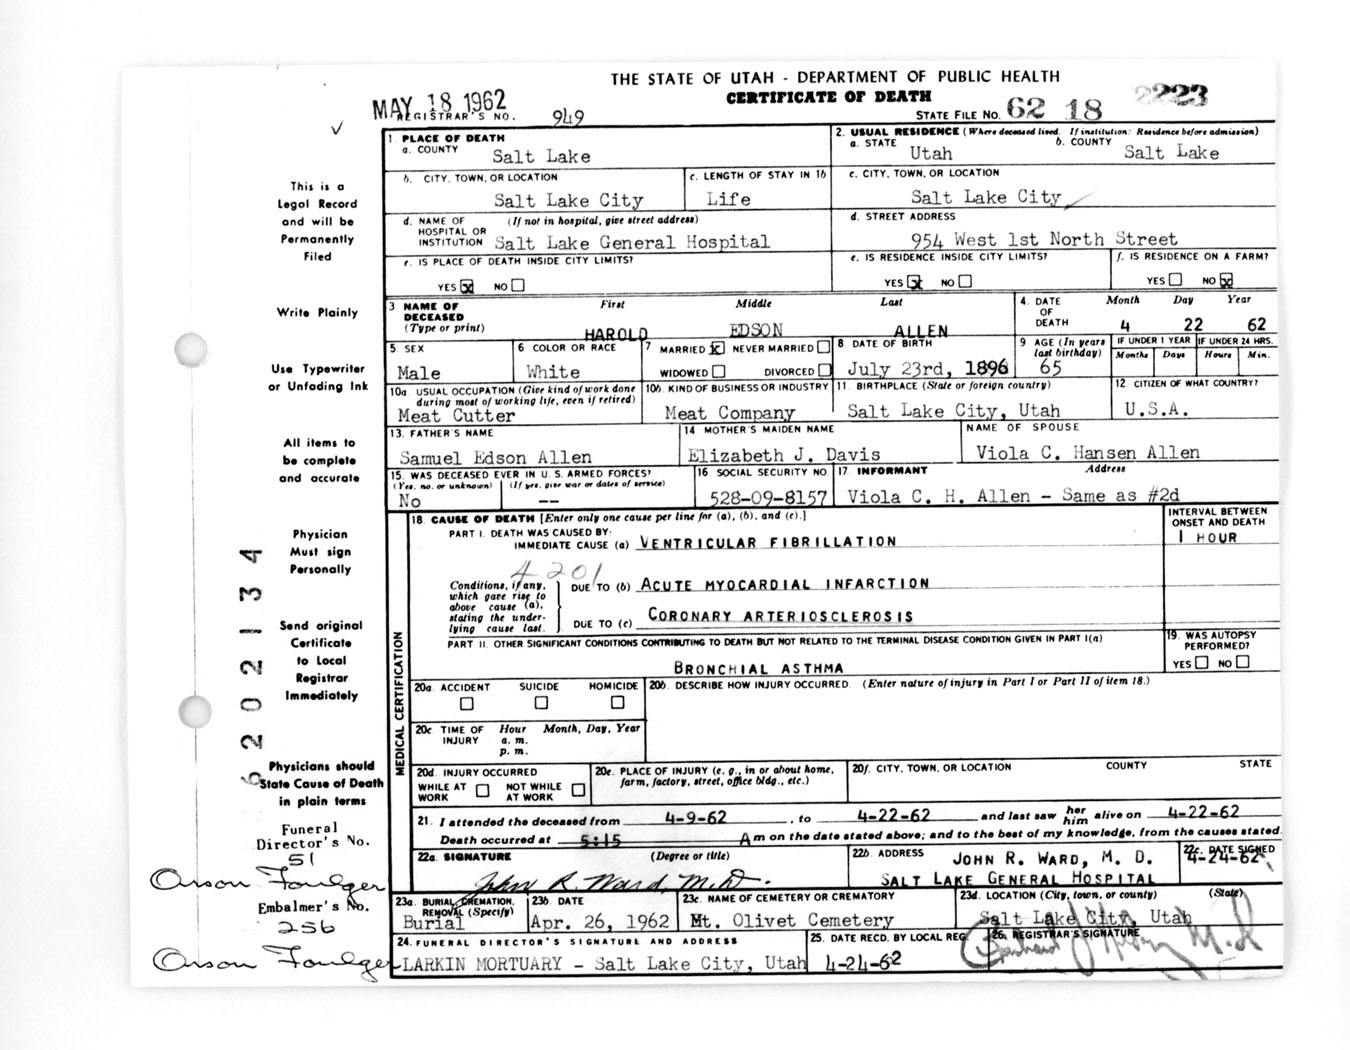 THE STATE OF UTAH - DEPARTMENT OF PUBLIC HEALTH
CERTIFICATE OF DEATH
MAY 18 1962
REGISTRAR'S NO. 949
STATE FILE NO. 62 18 2223
This is a
Legal Record
and will be
Permanently
Filed
Write Plainly
Use Typewriter
or Unfading Ink
All items to
be complete
and accurate
Physician
Must sign
Personally
Send original
Certificate
to Local
Registrar
Immediately
Physicians should
State Cause of Death
in plain terms
Funeral
Director's No.
51
Orson Foulger
Embalmer's No.
256
Orson Foulger
2 02 134
1. PLACE OF DEATH
a. COUNTY Salt Lake
2. USUAL RESIDENCE (Where deceased lived. If institution: Residence before admission)
a. STATE Utah b. COUNTY Salt Lake
b. CITY, TOWN, OR LOCATION Salt Lake City
c. LENGTH OF STAY IN 1b Life
c. CITY, TOWN, OR LOCATION Salt Lake City
d. NAME OF HOSPITAL OR INSTITUTION (If not in hospital, give street address) Salt Lake General Hospital
d. STREET ADDRESS 954 West 1st North Street
e. IS PLACE OF DEATH INSIDE CITY LIMITS? YES NO
e. IS RESIDENCE INSIDE CITY LIMITS? YES NO
f. IS RESIDENCE ON A FARM? YES NO
3 NAME OF DECEASED (Type or print) First Middle Last
HAROLD EDSON ALLEN
4. DATE OF DEATH Month Day Year
4 22 62
5. SEX Male
6 COLOR OR RACE White
7 MARRIED NEVER MARRIED WIDOWED DIVORCED
8 DATE OF BIRTH July 23rd, 1896
9 AGE (In years last birthday) 65
IF UNDER 1 YEAR Months Days
IF UNDER 24 HRS. Hours Min.
10a USUAL OCCUPATION (Give kind of work done during most of working life, even if retired) Meat Cutter
10b. KIND OF BUSINESS OR INDUSTRY Meat Company
11. BIRTHPLACE (State or foreign country) Salt Lake City, Utah
12. CITIZEN OF WHAT COUNTRY? U.S.A.
13. FATHER'S NAME Samuel Edson Allen
14 MOTHER'S MAIDEN NAME Elizabeth J. Davis
NAME OF SPOUSE Viola C. Hansen Allen
15. WAS DECEASED EVER IN U.S. ARMED FORCES? (Yes, no. or unknown) (If yes, give war or dates of service)
No --
16. SOCIAL SECURITY NO. 528-09-8157
17. INFORMANT Address
Viola C. H. Allen - Same as #2d
MEDICAL CERTIFICATION
18. CAUSE OF DEATH [Enter only one cause per line for (a), (b), and (c).]
INTERVAL BETWEEN ONSET AND DEATH
PART I. DEATH WAS CAUSED BY:
IMMEDIATE CAUSE (a) VENTRICULAR FIBRILLATION 1 HOUR
4201
Conditions, if any, which gave rise to above cause (a), stating the underlying cause last.
DUE TO (b) ACUTE MYOCARDIAL INFARCTION
DUE TO (c) CORONARY ARTERIOSCLEROSIS
PART II. OTHER SIGNIFICANT CONDITIONS CONTRIBUTING TO DEATH BUT NOT RELATED TO THE TERMINAL DISEASE CONDITION GIVEN IN PART I(a)
BRONCHIAL ASTHMA
19. WAS AUTOPSY PERFORMED? YES NO
20a. ACCIDENT SUICIDE HOMICIDE
20b. DESCRIBE HOW INJURY OCCURRED. (Enter nature of injury in Part I or Part II of item 18.)
20c TIME OF INJURY Hour a. m. p. m. Month, Day, Year
20d. INJURY OCCURRED WHILE AT WORK NOT WHILE AT WORK
20e. PLACE OF INJURY (e. g., in or about home, farm, factory, street, office bldg., etc.)
20f. CITY, TOWN, OR LOCATION COUNTY STATE
21. I attended the deceased from 4-9-62, to 4-22-62 and last saw her him alive on 4-22-62
Death occurred at 5:15 A m on the date stated above; and to the best of my knowledge, from the causes stated.
22a. SIGNATURE (Degree or title) John R. Ward, M.D.
22b. ADDRESS JOHN R. WARD, M. D.
SALT LAKE GENERAL HOSPITAL
22c. DATE SIGNED 4-24-62
23a. BURIAL, CREMATION, REMOVAL (Specify) Burial
23b. DATE Apr. 26, 1962
23c. NAME OF CEMETERY OR CREMATORY Mt. Olivet Cemetery
23d. LOCATION (City, town, or county) (State)
Salt Lake City, Utah
24. FUNERAL DIRECTOR'S SIGNATURE AND ADDRESS
LARKIN MORTUARY - Salt Lake City, Utah
25. DATE RECD. BY LOCAL REG. 4-24-62
26. REGISTRAR'S SIGNATURE